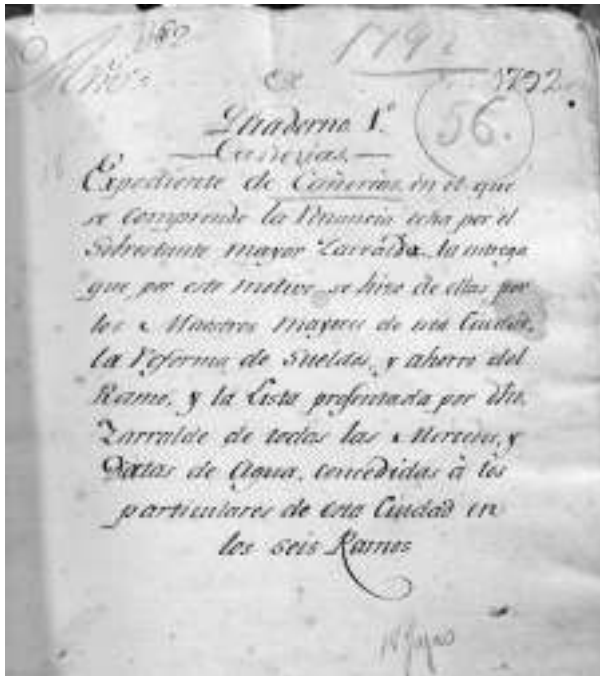 1792
1792.
56.
Quaderno 1º
Cañerias
Expediente de Cañerias, en el que
se comprende la Renuncia echa por el
Sobrestante mayor Zarralde, la entrega
que por este motivo, se hizo de ellas por
los Maestros mayores de esta Ciudad,
la Reforma de Sueldos, y ahorro del
Ramo, y la Lista presentada por dho.
Zarralde de todas las Mercedes, y
Datas de Agua, concedidas à los
particulares de esta Ciudad en
los seis Ramos